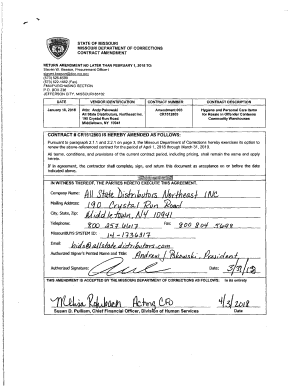 STATE OF MISSOURI
MISSOURI DEPARTMENT OF CORRECTIONS
CONTRACT AMENDMENT
RETURN AMENDMENT NO LATER THAN FEBRUARY 1, 2018 TO:
Steven W. Beeson, Procurement Officer I
(573) 526-6590
(573) 522-1562 (Fax)
FMU/PURCHASING SECTION
P.O. BOX 236
JEFFERSON CITY, MISSOURI 65102
DATE VENDOR IDENTIFICATION CONTRACT NUMBER CONTRACT DESCRIPTION
January 18, 2018 Attn: Andy Pakowski Amendment 003 Hygiene and Personal Care Items
All State Distributors, Northeast Inc. CR1512503 for Resale in Offender Canteens
190 Crystal Run Road Community Warehouses
Middletown, NY 10941
CONTRACT # CR1512503 IS HEREBY AMENDED AS FOLLOWS:
Pursuant to paragraph 2.1.1 and 2.2.1 on page 3, the Missouri Department of Corrections hereby exercises its option to
renew the above-referenced contract for the period of April 1, 2018 through March 31, 2019.
All terms, conditions, and provisions of the current contract period, including pricing, shall remain the same and apply
hereto.
If in agreement, the contractor shall complete, sign and return this document as acceptance on or before the date
indicated above.
IN WITNESS THEREOF, THE PARTIES HERETO EXECUTE THIS AGREEMENT.
Company Name: All State Distributors Northeast INC
Mailing Address: 190 Crystal Run Road
City, State, Zip: Middletown, NY 10941
Telephone: 800 257 6417 Fax: 800 804 5698
MissouriBUYS SYSTEM ID: 14-1736317
Email: bids@allstatedistributors.com
Authorized Signer's Printed Name and Title: Andrew J Pakowski, President
Authorized Signature: Date:
THIS AMENDMENT IS ACCEPTED BY THE MISSOURI DEPARTMENT OF CORRECTIONS AS FOLLOWS: In its entirety
Acting CFO 4/3/2018
Susan D. Pulliam, Chief Financial Officer, Division of Human Services Date